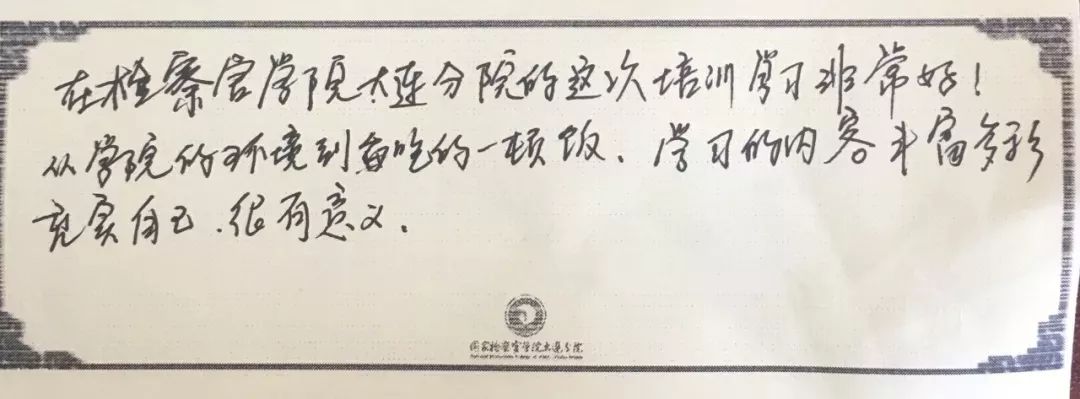 在检察官学院大连分院的这次培训学习非常好！
从学院的环境到每吃的一顿饭、学习的内容丰富多彩
充实自己、很有意义。
国家检察官学院大连分院